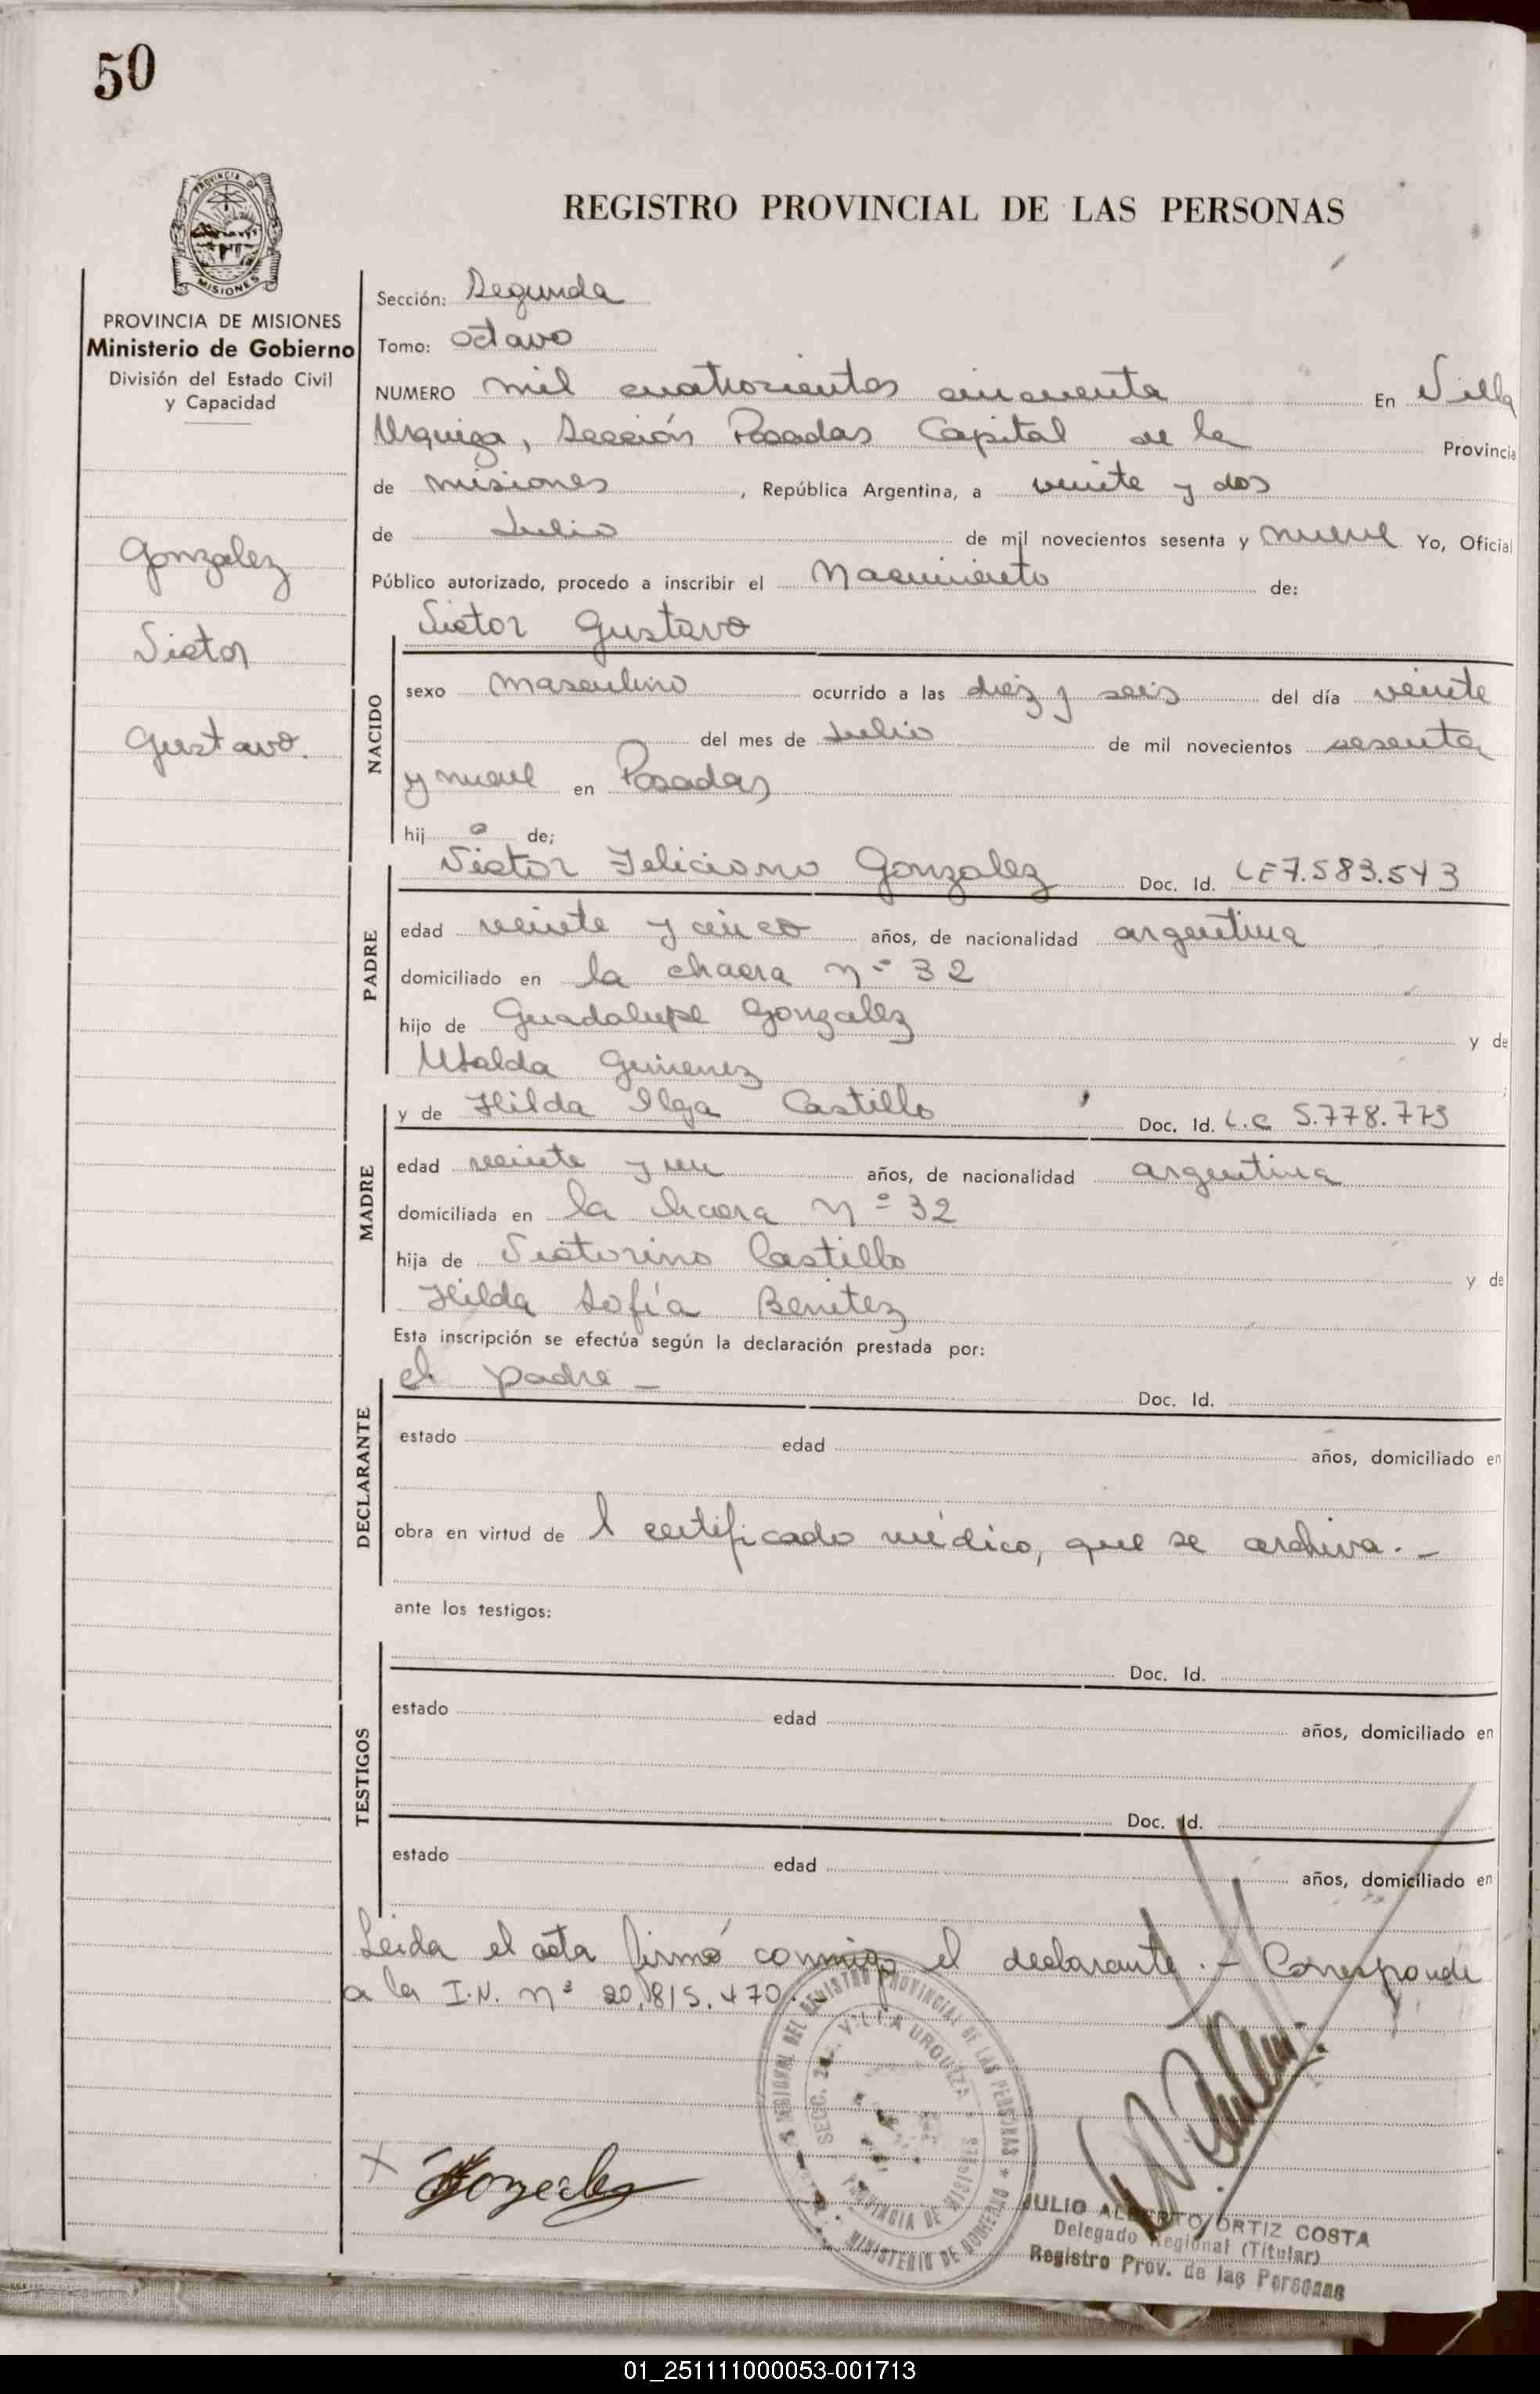 50
PROVINCIA DE
MISIONES
REGISTRO PROVINCIAL DE LAS PERSONAS
PROVINCIA DE MISIONES
Ministerio de Gobierno
División del Estado Civil
y Capacidad
Gonzalez
Victor
Gustavo.
Sección: Segunda
Tomo: octavo
NUMERO mil cuatrocientos cincuenta En Villa
Urquiza, Sección Posadas Capital de la Provincia
de misiones, República Argentina, a veinte y dos
de Julio de mil novecientos sesenta y nueve Yo, Oficial
Público autorizado, procedo a inscribir el Nacimiento de:
Victor Gustavo
NACIDO
sexo masculino ocurrido a las diez y seis del día veinte
del mes de Julio de mil novecientos sesenta
y nueve en Posadas
hij o de;
Victor Feliciano Gonzalez Doc. Id. LE 7.583.543
PADRE
edad veinte y cinco años, de nacionalidad argentina
domiciliado en la chacra nº 32
hijo de Guadalupe Gonzalez y de
Ubalda Gimenez
y de Hilda Olga Castillo Doc. Id. L.C 5.778.773
MADRE
edad veinte y un años, de nacionalidad argentina
domiciliada en la chacra nº 32
hija de Victorino Castillo y de
Hilda Sofía Benitez
Esta inscripción se efectúa según la declaración prestada por:
el padre — Doc. Id.
DECLARANTE
estado edad años, domiciliado en
obra en virtud de l certificado médico, que se archiva. —
ante los testigos:
Doc. Id.
TESTIGOS
estado edad años, domiciliado en
Doc. Id.
estado edad años, domiciliado en
Leida el acta firmó conmigo el declarante. — Corresponde
a la I.N. nº 20.815.470.
REGIONAL DEL REGISTRO PROVINCIAL DE LAS PERSONAS * MINISTERIO DE GOBIERNO
SECC. 2a. VILLA URQUIZA
PROVINCIA DE MISIONES
X Gonzalez
JULIO ALBERTO ORTIZ COSTA
Delegado Regional (Titular)
Registro Prov. de las Personas
01_251111000053-001713